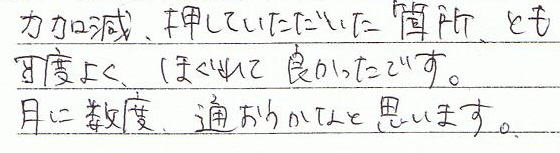 力加減、押していただいた箇所、とも
丁度よく、ほぐれて良かったです。
月に数度、通おうかなと思います。